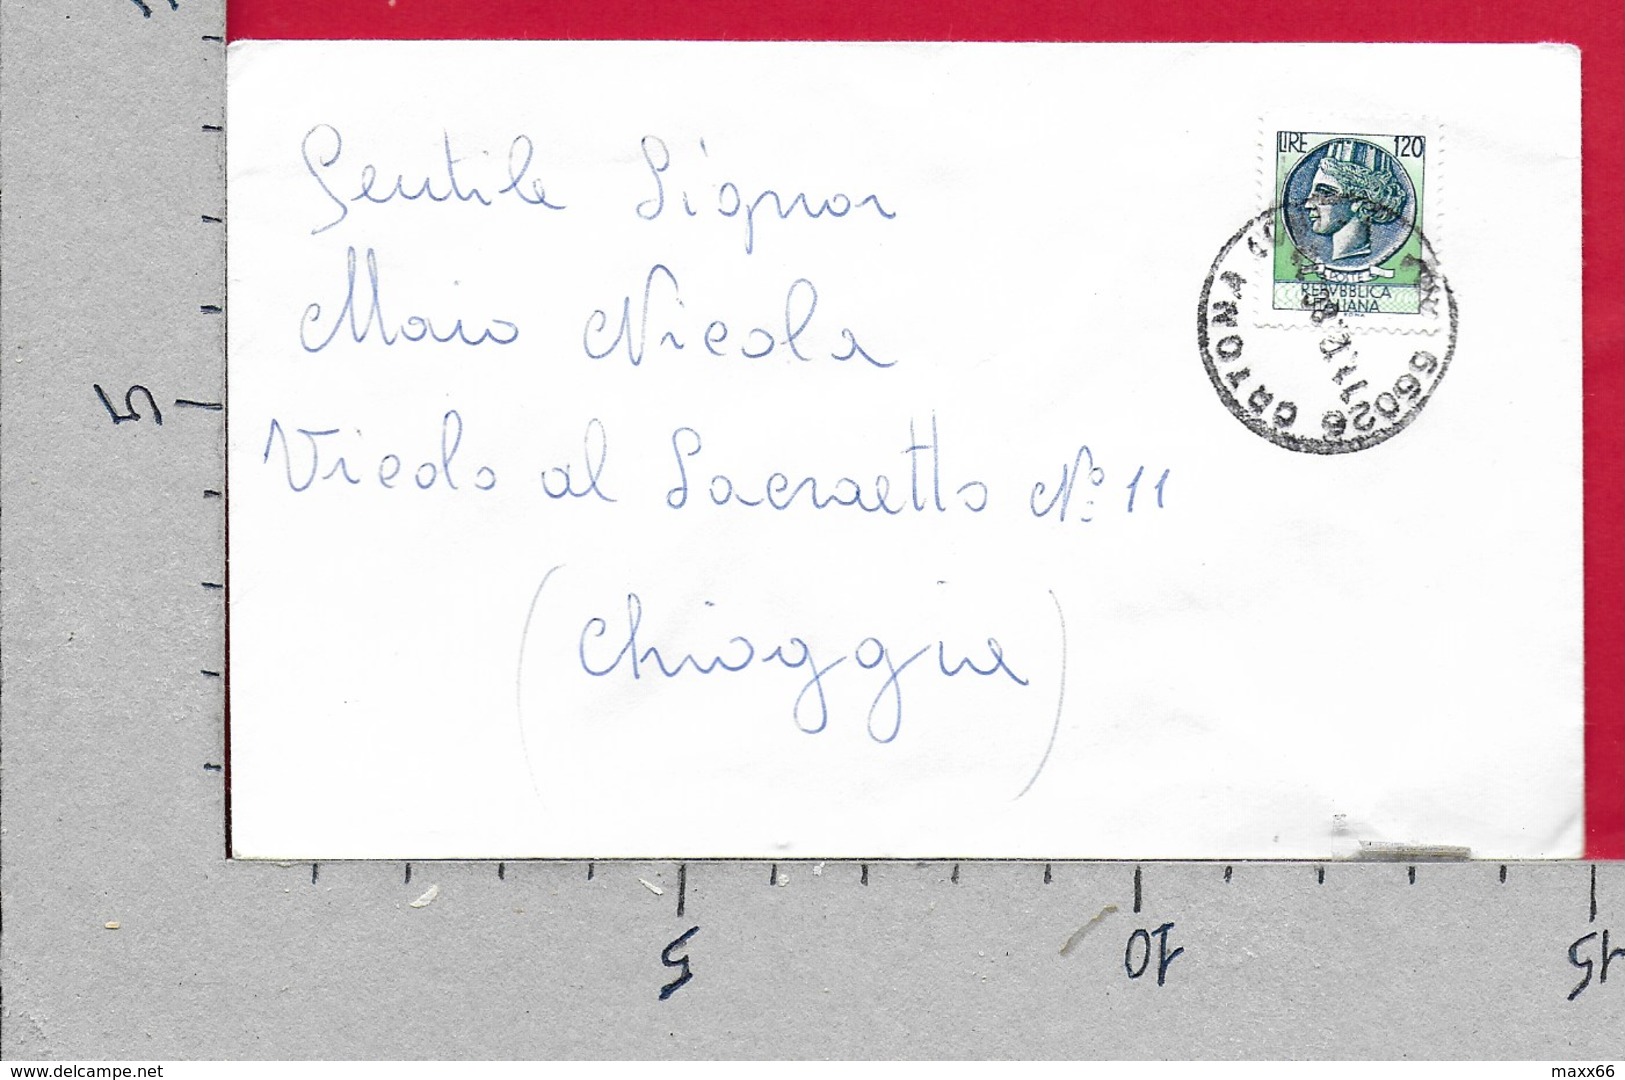 Gentile Signor
Maio Nicola
Vicolo al Sacraetto N° 11
(Chioggia)
LIRE 120
POSTE
REPVBBLICA
ITALIANA
66026 ORTONA
5
5
10
15
delcampe.net
maxx66